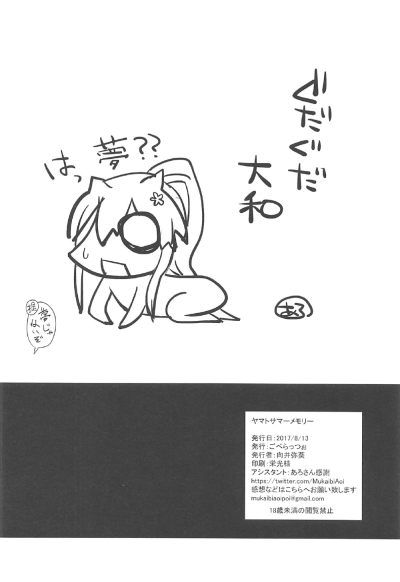 ぐだぐだ
大和
夢??
はっ
ヤマトサマーメモリー
発行日:2017/8/13
発行:ごべらっつぉ
発行者:向井弥葵
印刷:栄光様
アシスタント:あろさん感謝
https://twitter.com/MukaibiAoi
感想などはこちらへお願い致します
mukaibiaoipoi@gmail.com
18歳未満の閲覧禁止